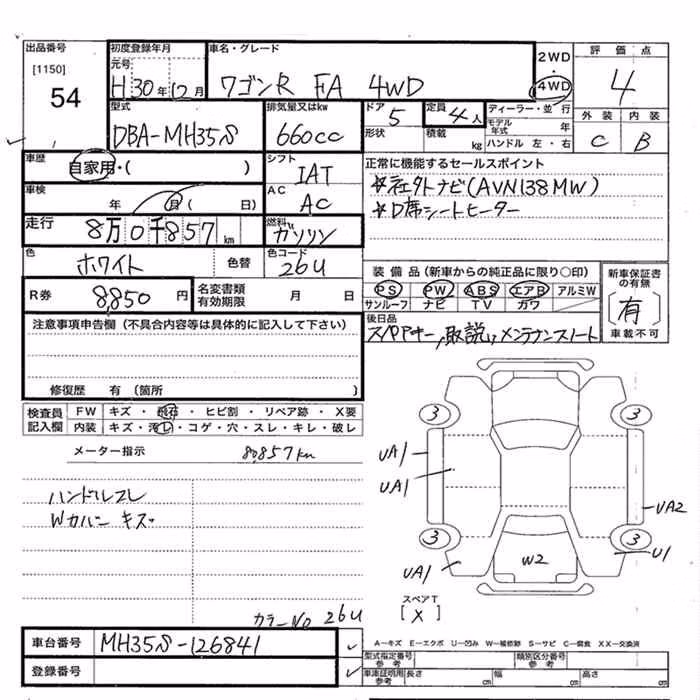 出品番号
[1150]
54
初度登録年月
元号
H 30年 12月
車名・グレード
ワゴンR FA 4WD
2WD
・
4WD
評価点
4
外装 内装
C B
型式
DBA-MH35S
排気量又はkw
660cc
ドア
5
形状
定員
4人
積載 kg
ディーラー・並行
モデル年式 年
ハンドル 左・右
車歴
自家用・( )
シフト
IAT
車検
年 月( 日)
AC
AC
正常に機能するセールスポイント
☆社外ナビ(AVN138MW)
☆D席シートヒーター
走行
8万0千857km
燃料
ガソリン
色
ホワイト
色替
色コード
26U
装備品(新車からの純正品に限り○印)
PS PW ABS エアB アルミW
サンルーフ ナビ TV カワ
新車保証書の有無
[有]
車載不可
R券
8,850円
名変書類有効期限 月 日
後日品
スペアキー,取説,メンテナンスノート
注意事項申告欄(不具合内容等は具体的に記入して下さい)
修復歴 有(箇所 )
検査員記入欄
FW キズ・飛石・ヒビ割・リペア跡・X要
内装 キズ・汚レ・コゲ・穴・スレ・キレ・破レ
メーター指示 80,857km
ハンドルスレ
Wカバー キズ
3
3
UA1
UA1
UA2
3
3
UA1
W2
U1
スペアT
[X]
カラーNo 26U
車台番号 MH35S-126841
登録番号
A-キズ E-エクボ U-凹み W-補修跡 S-サビ C-腐食 XX-交換済
型式指定番号
参考
類別区分番号
参考
車庫証明用
参考
長さ cm
幅 cm
高さ cm